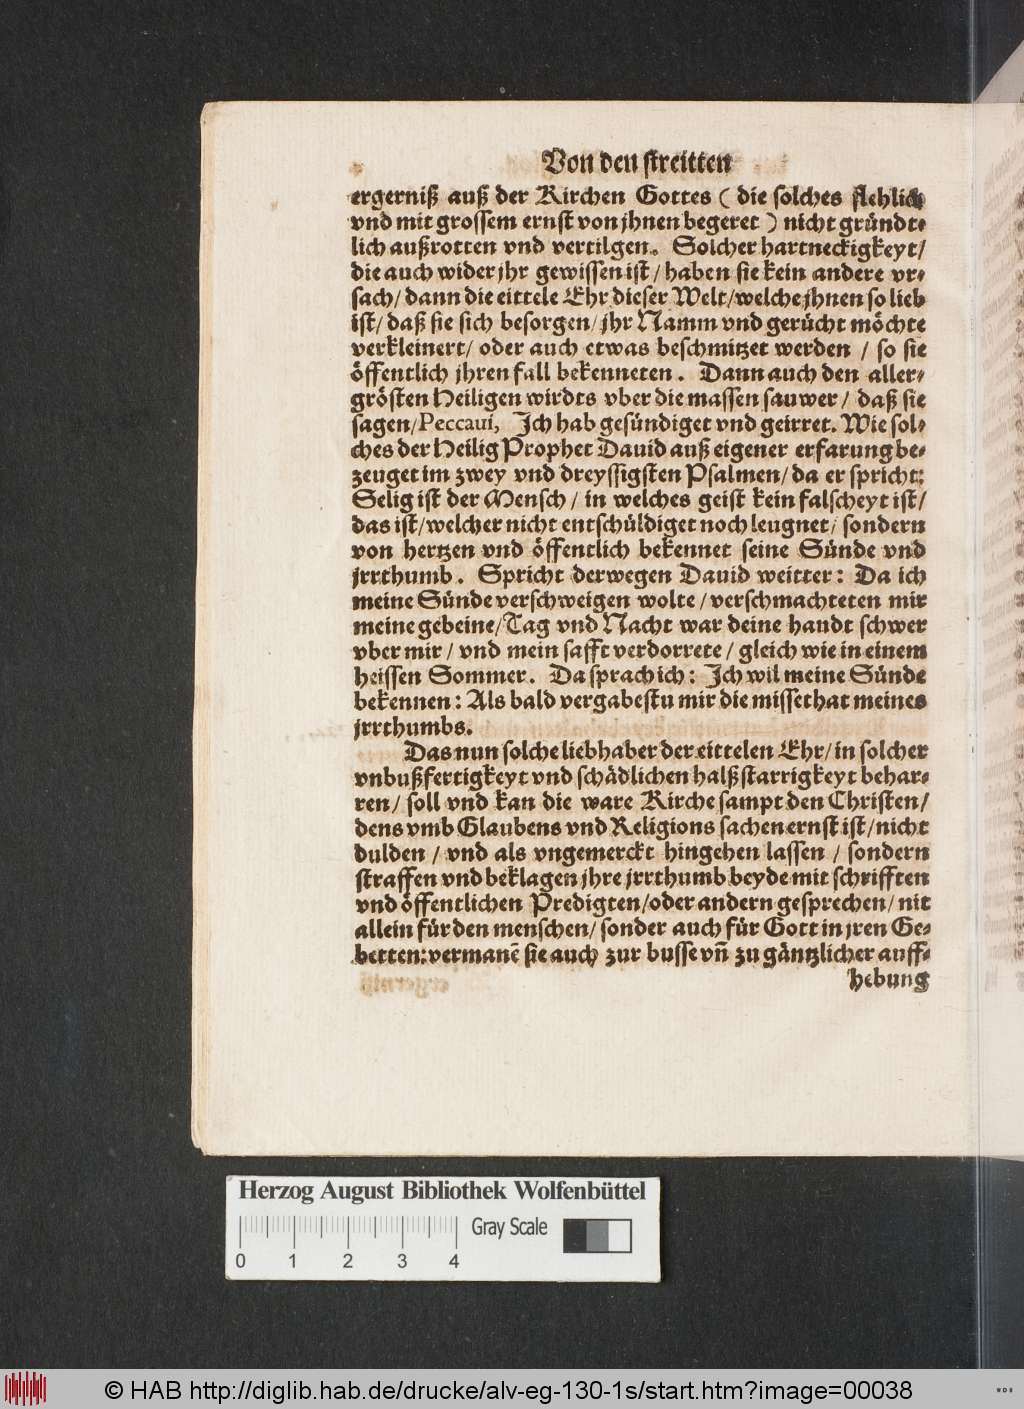 Von den streitten
ergerniß auß der Kirchen Gottes ( die solches flehlich
vnd mit grossem ernst von jhnen begeret ) nicht gründt⸗
lich außrotten vnd vertilgen. Solcher hartneckigkeyt/
die auch wider jhr gewissen ist/ haben sie kein andere vr⸗
sach/ dann die eittele Ehr dieser Welt/welche jhnen so lieb
ist/ daß sie sich besorgen/ jhr Namm vnd gerücht möchte
verkleinert/ oder auch etwas beschmitzet werden / so sie
öffentlich jhren fall bekenneten. Dann auch den aller⸗
grösten Heiligen wirdts vber die massen sauwer/ daß sie
sagen/Peccaui, Ich hab gesündiget vnd geirret. Wie sol⸗
ches der Heilig Prophet Dauid auß eigener erfarung be⸗
zeuget im zwey vnd dreyssigsten Psalmen/ da er spricht:
Selig ist der Mensch/ in welches geist kein falscheyt ist/
das ist/welcher nicht entschüldiget noch leugnet/ sondern
von hertzen vnd öffentlich bekennet seine Sünde vnd
jrrthumb. Spricht derwegen Dauid weitter: Da ich
meine Sünde verschweigen wolte/verschmachteten mir
meine gebeine/Tag vnd Nacht war deine handt schwer
vber mir/ vnd mein safft verdorrete/ gleich wie in einem
heissen Sommer. Da sprach ich: Ich wil meine Sünde
bekennen: Als bald vergabestu mir die missethat meines
jrrthumbs.
Das nun solche liebhaber der eittelen Ehr/ in solcher
vnbußfertigkeyt vnd schädlichen halßstarrigkeyt behar⸗
ren/ soll vnd kan die ware Kirche sampt den Christen/
dens vmb Glaubens vnd Religions sachen ernst ist/nicht
dulden / vnd als vngemerckt hingehen lassen / sondern
straffen vnd beklagen jhre jrrthumb beyde mit schrifften
vnd öffentlichen Predigten/oder andern gesprechen/ nit
allein für den menschen/ sonder auch für Gott in jren Ge⸗
betten: vermanē sie auch zur busse vñ zu gäntzlicher auff⸗
hebung
Herzog August Bibliothek Wolfenbüttel
Gray Scale
0 1 2 3 4
© HAB http://diglib.hab.de/drucke/alv-eg-130-1s/start.htm?image=00038